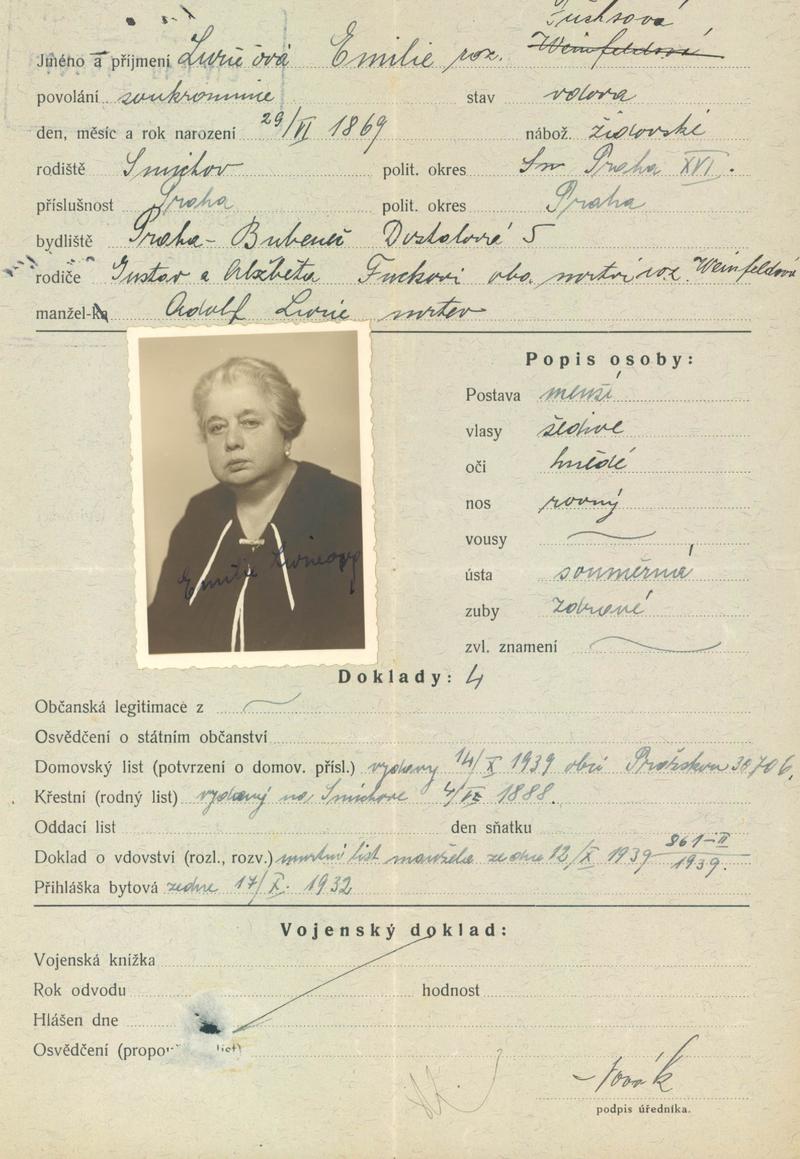 Fuchsová
Jméno a příjmení Emilie roz. Weinfeldová
povolání soukromnice stav vdova
den, měsíc a rok narození 29/VI 1869 nábož. židovské
rodiště Smíchov polit. okres Sm Praha XVI.
příslušnost Praha polit. okres Praha
bydliště Praha - Bubeneč Dostalová 5
rodiče Gustav a Alžběta Fuchsovi oba mrtvi roz. Weinfeldová
manžel-ka Adolf mrtev
Popis osoby:
Postava menší
vlasy šedivé
oči hnědé
nos rovný
vousy
ústa souměrná
zuby zdravé
zvl. znamení
Emilie
Doklady: 4
Občanská legitimace z
Osvědčení o státním občanství
Domovský list (potvrzení o domov. přísl.) vydaný 14/X 1939 obcí Pražskou 30706,
Křestní (rodný list) vydaný na Smíchově 1888.
Oddací list den sňatku
Doklad o vdovství (rozl., rozv.) úmrtní list manžela ze dne 12/X 1939 861-II
1939.
Přihláška bytová ze dne 17/X. 1932
Vojenský doklad:
Vojenská knížka
Rok odvodu hodnost
Hlášen dne
Osvědčení
Novák
podpis úředníka.